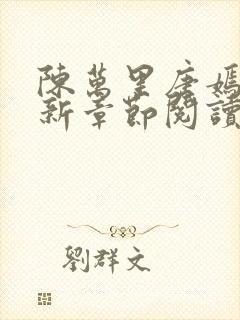 陳萬里唐嫣
新章節閱讀
劉群文